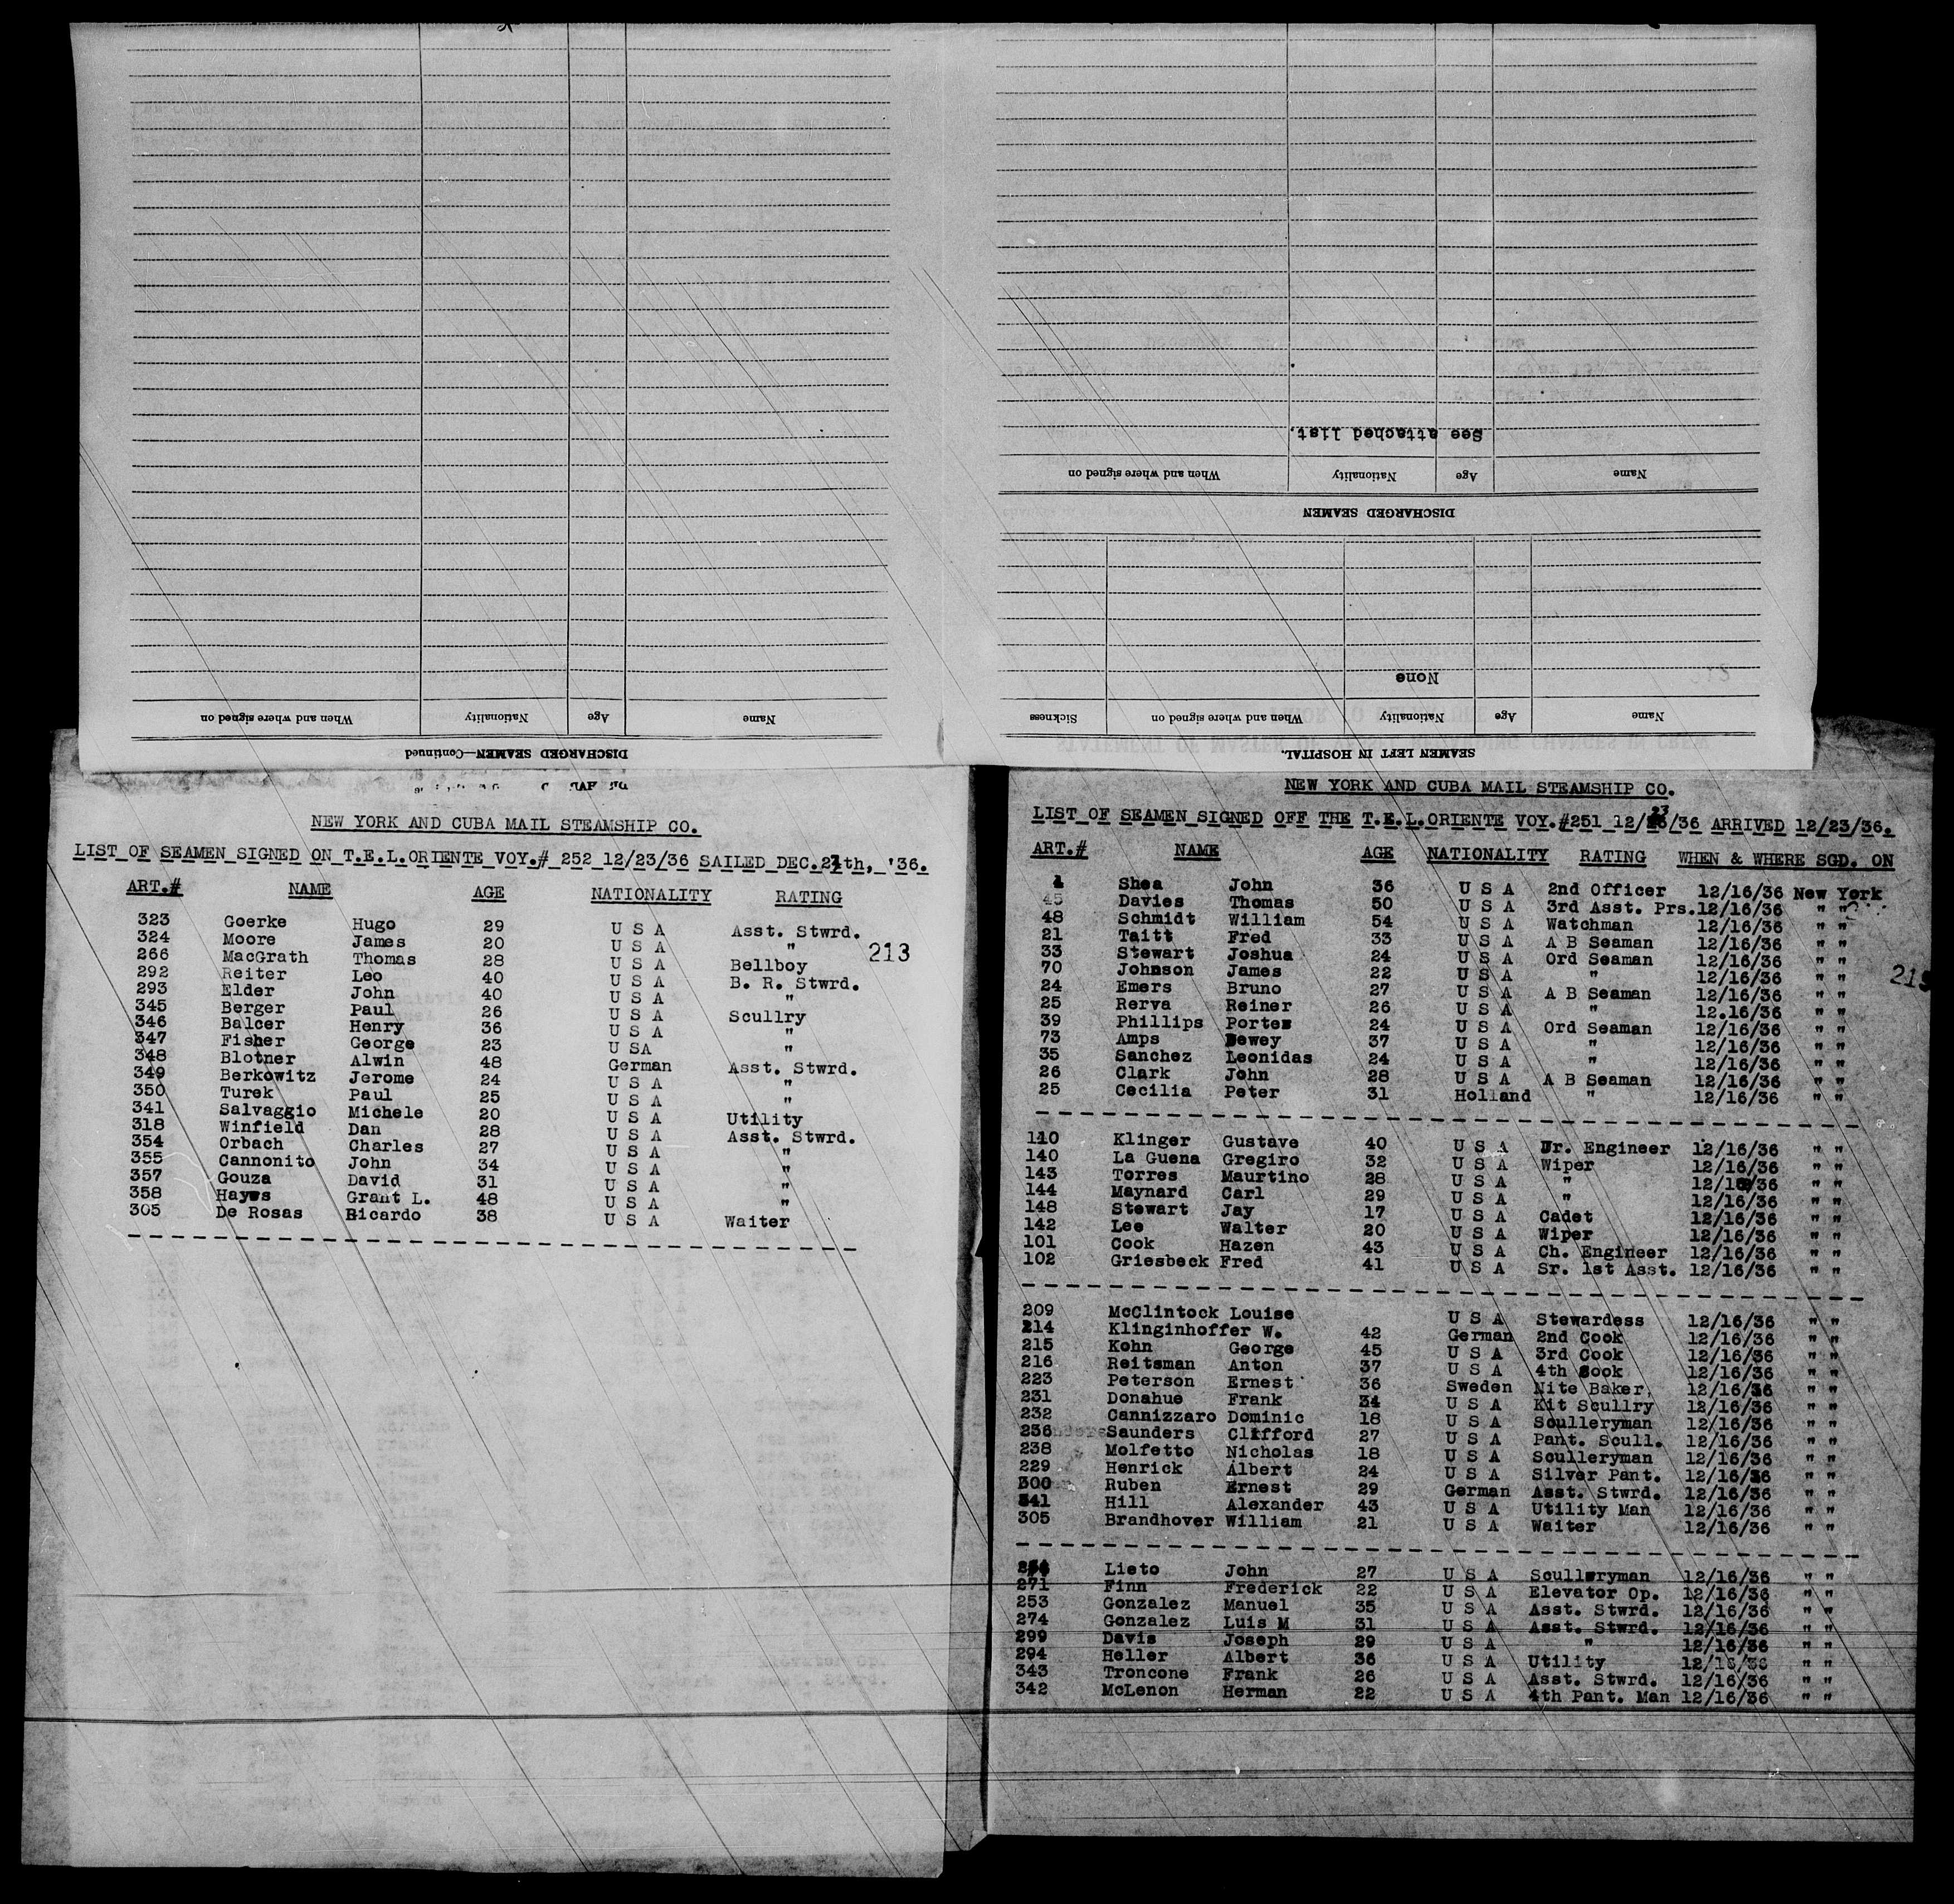 DISCHARGED SEAMEN—Continued
Name Age Nationality When and where signed on
SEAMEN LEFT IN HOSPITAL.
Name Age Nationality When and where signed on Sickness
None
DISCHARGED SEAMEN
Name Age Nationality When and where signed on
See attached list.
NEW YORK AND CUBA MAIL STEAMSHIP CO.
LIST OF SEAMEN SIGNED ON T.E.L.ORIENTE VOY.# 252 12/23/36 SAILED DEC.24th, '36.
ART.# NAME AGE NATIONALITY RATING
323 Goerke Hugo 29 U S A Asst. Stwrd.
324 Moore James 20 U S A "
213
266 MacGrath Thomas 28 U S A Bellboy
292 Reiter Leo 40 U S A B. R. Stwrd.
293 Elder John 40 U S A "
345 Berger Paul 26 U S A Scullry
346 Balcer Henry 36 U S A "
347 Fisher George 23 U SA "
348 Blotner Alwin 48 German Asst. Stwrd.
349 Berkowitz Jerome 24 U S A "
350 Turek Paul 25 U S A "
341 Salvaggio Michele 20 U S A Utility
318 Winfield Dan 28 U S A Asst. Stwrd.
354 Orbach Charles 27 U S A "
355 Cannonito John 34 U S A "
357 Gouza David 31 U S A "
358 Hayes Grant L. 48 U S A "
305 De Rosas Ricardo 38 U S A Waiter
NEW YORK AND CUBA MAIL STEAMSHIP CO.
LIST OF SEAMEN SIGNED OFF THE T.E.L.ORIENTE VOY.#251 12/23/36 ARRIVED 12/23/36.
ART.# NAME AGE NATIONALITY RATING WHEN & WHERE SGD. ON
1 Shea John 36 U S A 2nd Officer 12/16/36 New York
45 Davies Thomas 50 U S A 3rd Asst. Prs. 12/16/36 " "
48 Schmidt William 54 U S A Watchman 12/16/36 " "
21 Taitt Fred 33 U S A A B Seaman 12/16/36 " "
33 Stewart Joshua 24 U S A Ord Seaman 12/16/36 " "
70 Johnson James 22 U S A " 12/16/36 " "
213
24 Emers Bruno 27 U S A A B Seaman 12/16/36 " "
25 Rerva Reiner 26 U S A " 12.16/36 " "
39 Phillips Porter 24 U S A Ord Seaman 12/16/36 " "
73 Amps Dewey 37 U S A " 12/16/36 " "
35 Sanchez Leonidas 24 U S A " 12/16/36 " "
26 Clark John 28 U S A A B Seaman 12/16/36 " "
25 Cecilia Peter 31 Holland " 12/16/36 " "
110 Klinger Gustave 40 U S A Jr. Engineer 12/16/36 " "
140 La Guena Gregiro 32 U S A Wiper 12/16/36 " "
143 Torres Maurtino 28 U S A " 12/16/36 " "
144 Maynard Carl 29 U S A " 12/16/36 " "
148 Stewart Jay 17 U S A Cadet 12/16/36 " "
142 Lee Walter 20 U S A Wiper 12/16/36 " "
101 Cook Hazen 43 U S A Ch. Engineer 12/16/36 " "
102 Griesbeck Fred 41 U S A Sr. 1st Asst. 12/16/36 " "
209 McClintock Louise U S A Stewardess 12/16/36 " "
214 Klinginhoffer W. 42 German 2nd Cook 12/16/36 " "
215 Kohn George 45 U S A 3rd Cook 12/16/36 " "
216 Reitsman Anton 37 U S A 4th Cook 12/16/36 " "
223 Peterson Ernest 36 Sweden Nite Baker, 12/16/36 " "
231 Donahue Frank 34 U S A Kit Scullry 12/16/36 " "
232 Cannizzaro Dominic 18 U S A Sculleryman 12/16/36 " "
236 Saunders Clifford 27 U S A Pant. Scull. 12/16/36 " "
238 Molfetto Nicholas 18 U S A Sculleryman 12/16/36 " "
229 Henrick Albert 24 U S A Silver Pant. 12/16/36 " "
300 Ruben Ernest 29 German Asst. Stwrd. 12/16/36 " "
341 Hill Alexander 43 U S A Utility Man 12/16/36 " "
305 Brandhover William 21 U S A Waiter 12/16/36 " "
Lieto John 27 U S A Sculleryman 12/16/36 " "
271 Finn Frederick 22 U S A Elevator Op. 12/16/36 " "
253 Gonzalez Manuel 35 U S A Asst. Stwrd. 12/16/36 " "
274 Gonzalez Luis M 31 U S A Asst. Stwrd. 12/16/36 " "
299 Davis Joseph 29 U S A " 12/16/36 " "
294 Heller Albert 36 U S A Utility 12/16/36 " "
343 Troncone Frank 26 U S A Asst. Stwrd. 12/16/36 " "
342 McLenon Herman 22 U S A 4th Pant. Man 12/16/36 " "